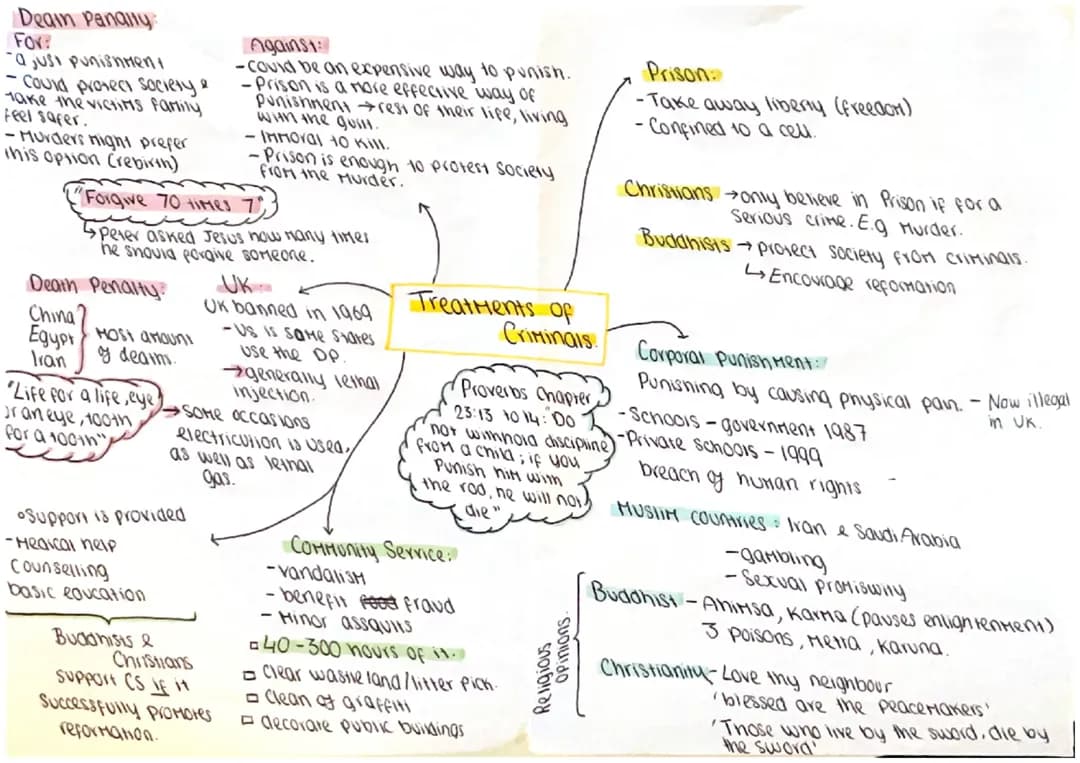 Death Penalty:
For:
-a just punishment
- Could protect society &
take the victims family
feel safer.
- Murders might prefer
this option (rebirth)
Against:
-could be an expensive way to punish.
- Prison is a more effective way of
punishment → rest of their life, living
with the guilt.
- Immoral to kill.
- Prison is enough to protest society
from the murder.
"Forgive 70 times 7"
↳ Peter asked Jesus how many times
he should forgive someone.
Prison:
- Take away liberty (freedom)
- Confined to a cell.
Christians → only believe in Prison if for a
serious crime. E.g Murder.
Buddhists → protect society from criminals.
↳ Encourage reformation
Treatments of
Criminals.
Death Penalty:
China
Egypt
Iran
Most amount
of deaths.
"Life for a life, eye
or an eye, tooth
for a tooth"
UK.
UK banned in 1969
- US is some states
use the DP.
→ generally lethal
injection.
→ some occasions
electricution is used,
as well as lethal
gas.
Proverbs Chapter
23:13 to 14: "Do
not withhold discipline
from a child; if you
punish him with
the rod, he will not
die"
Corporal Punishment:
Punishing by causing physical pain. - Now illegal
in UK.
- Schools - government 1987
- Private Schools - 1999
breach of human rights
Muslim countries: Iran & Saudi Arabia
- gambling
- Sexual promiswity
Religious
opinions.
Buddhist - Ahimsa, Karma (pauses enlightenment)
3 poisons, Metta, Karuna.
Christianity - Love thy neighbour
'blessed are the peacemakers'
'Those who live by the sword, die by
the sword'
Support is provided
- Medical help
Counselling
basic education
Buddhists &
Christians
support CS if it
successfully promotes
reformation.
Community Service:
- vandalism
- benefit fraud
- Minor assaults
40-300 hours of it.
Clear waste land/litter pick.
Clean of graffiti
decorate public buildings